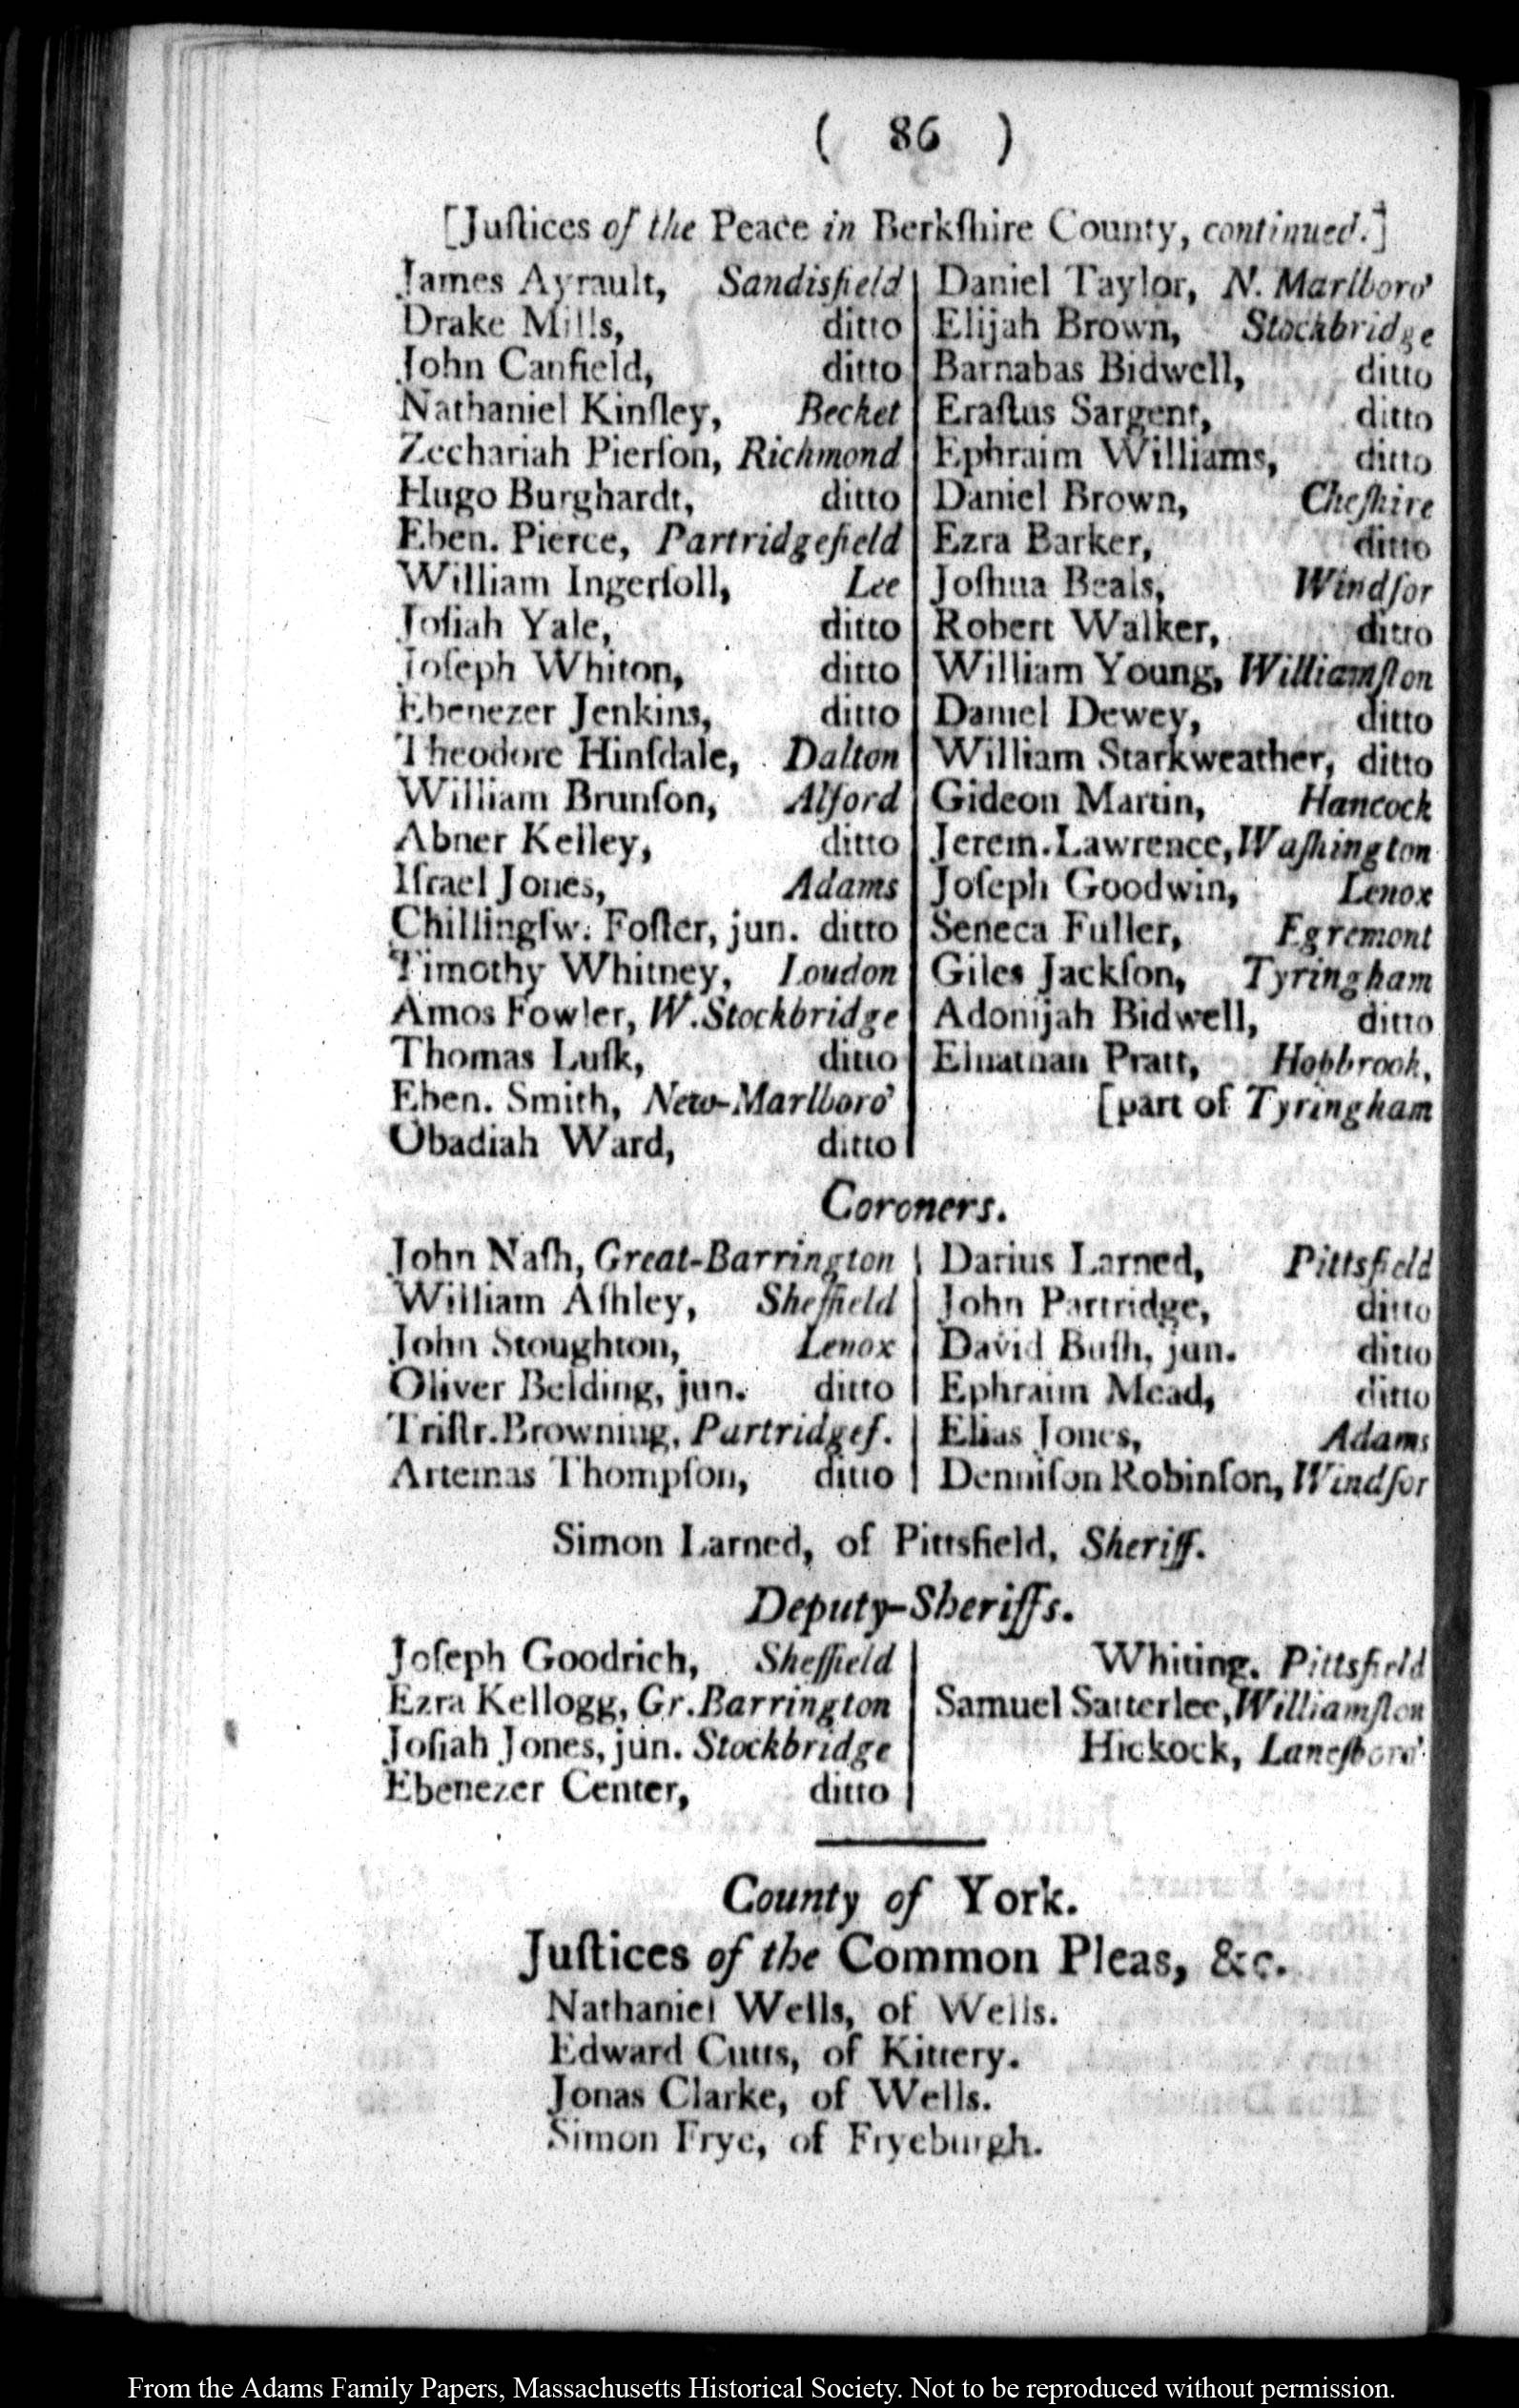 ( 86 )
[Juſtices of the Peace in Berkſhire County, continued.]
James Ayrault, Sandisfield
Drake Mills, ditto
John Canfield, ditto
Nathaniel Kinſley, Becket
Zechariah Pierſon, Richmond
Hugo Burghardt, ditto
Eben. Pierce, Partridgefield
William Ingerſoll, Lee
Joſiah Yale, ditto
Joſeph Whiton, ditto
Ebenezer Jenkins, ditto
Theodore Hinſdale, Dalton
William Brunſon, Alford
Abner Kelley, ditto
Iſrael Jones, Adams
Chillingſw. Foſter, jun. ditto
Timothy Whitney, Loudon
Amos Fowler, W. Stockbridge
Thomas Luſk, ditto
Eben. Smith, New-Marlboro'
Obadiah Ward, ditto
Daniel Taylor, N. Marlboro'
Elijah Brown, Stockbridge
Barnabas Bidwell, ditto
Eraſtus Sargent, ditto
Ephraim Williams, ditto
Daniel Brown, Cheſhire
Ezra Barker, ditto
Joſhua Beals, Windſor
Robert Walker, ditto
William Young, Williamſton
Daniel Dewey, ditto
William Starkweather, ditto
Gideon Martin, Hancock
Jerem. Lawrence, Waſhington
Joſeph Goodwin, Lenox
Seneca Fuller, Egremont
Giles Jackſon, Tyringham
Adonijah Bidwell, ditto
Elnathan Pratt, Hopbrook,
[part of Tyringham
Coroners.
John Naſh, Great-Barrington
William Aſhley, Sheffield
John Stoughton, Lenox
Oliver Belding, jun. ditto
Triſtr. Browning, Partridgef.
Artemas Thompſon, ditto
Darius Larned, Pittsfield
John Partridge, ditto
David Buſh, jun. ditto
Ephraim Mead, ditto
Elias Jones, Adams
Denniſon Robinſon, Windſor
Simon Larned, of Pittsfield, Sheriff.
Deputy-Sheriffs.
Joſeph Goodrich, Sheffield
Ezra Kellogg, Gr. Barrington
Joſiah Jones, jun. Stockbridge
Ebenezer Center, ditto
Whiting, Pittsfield
Samuel Satterlee, Williamſton
Hickock, Laneſboro'
County of York.
Juſtices of the Common Pleas, &c.
Nathaniel Wells, of Wells.
Edward Cutts, of Kittery.
Jonas Clarke, of Wells.
Simon Frye, of Fryeburgh.
From the Adams Family Papers, Massachusetts Historical Society. Not to be reproduced without permission.